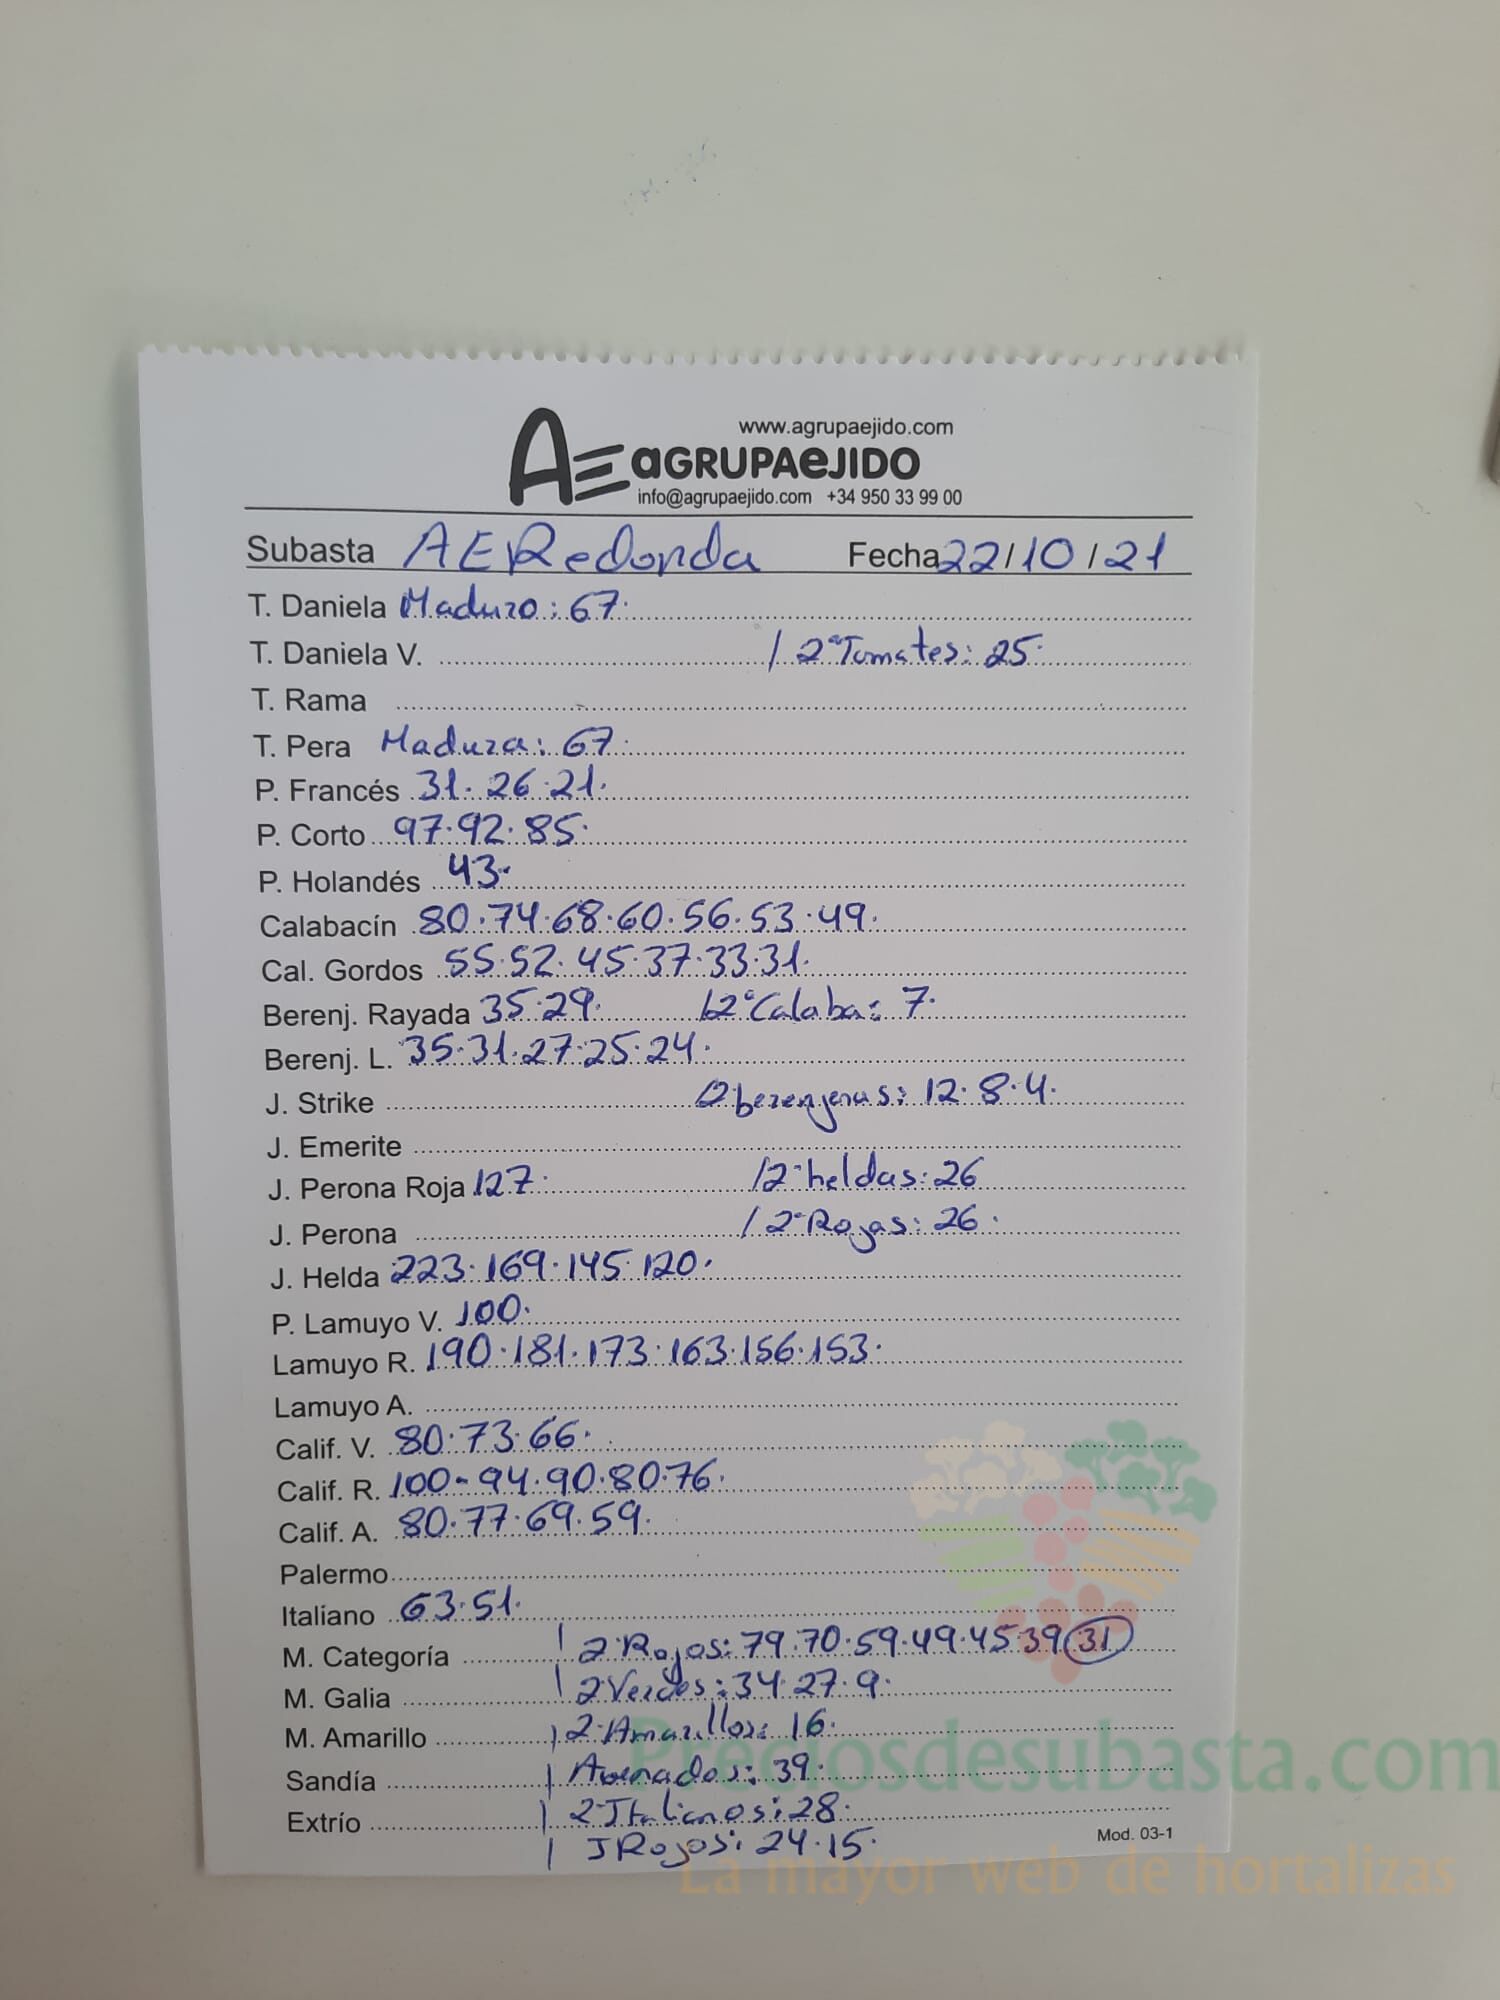 www.agrupaejido.com
AE aGRUPAeJIDO
info@agrupaejido.com +34 950 33 99 00
Subasta AERedonda Fecha 22/10/21
T. Daniela Maduro: 67.
T. Daniela V. / 2ªTomates: 25.
T. Rama
T. Pera Madura: 67.
P. Francés 31. 26.21.
P. Corto 97.92.85.
P. Holandés 43.
Calabacín 80.74.68.60.56.53.49.
Cal. Gordos 55.52.45.37.33.31.
Berenj. Rayada 35.29. /2ªCalaba: 7.
Berenj. L. 35.31.27.25.24.
J. Strike 2 berenjenas: 12.8.4.
J. Emerite
J. Perona Roja 127. /2ªheldas: 26
J. Perona / 2ªRojas: 26.
J. Helda 223.169.145.120.
P. Lamuyo V. 100.
Lamuyo R. 190.181.173.163.156.153.
Lamuyo A.
Calif. V. 80.73.66.
Calif. R. 100-94.90.80.76.
Calif. A. 80.77.69.59.
Palermo
Italiano 63.51.
M. Categoría / 2ªRojos: 79.70.59.49.45 39 31
M. Galia / 2Verdes: 34.27.9.
M. Amarillo / 2ªAmarillos: 16.
Sandía / Asurados: 39.
Extrío / 2ªItalianos: 28.
/ JRojos: 24.15.
Mod. 03-1
Preciosdesubasta.com
La mayor web de hortalizas